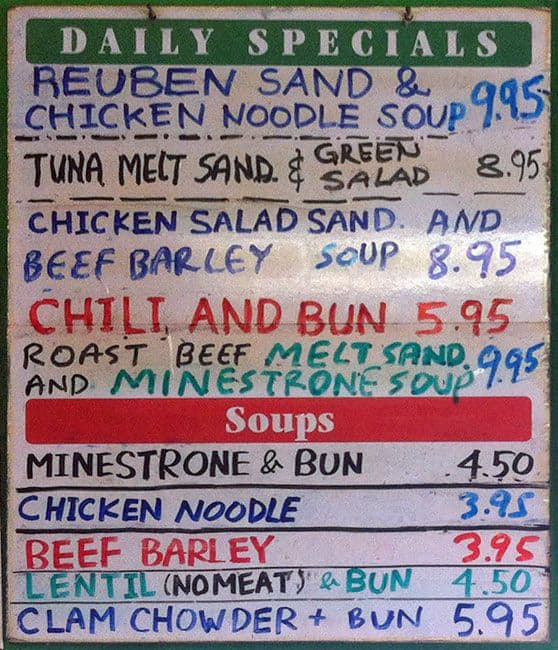 DAILY SPECIALS
REUBEN SAND &
CHICKEN NOODLE SOUP 9.95
TUNA MELT SAND. & GREEN SALAD 8.95
CHICKEN SALAD SAND. AND
BEEF BARLEY SOUP 8.95
CHILI AND BUN 5.95
ROAST BEEF MELT SAND.
AND MINESTRONE SOUP 9.95
Soups
MINESTRONE & BUN 4.50
CHICKEN NOODLE 3.95
BEEF BARLEY 3.95
LENTIL (NO MEAT) & BUN 4.50
CLAM CHOWDER + BUN 5.95